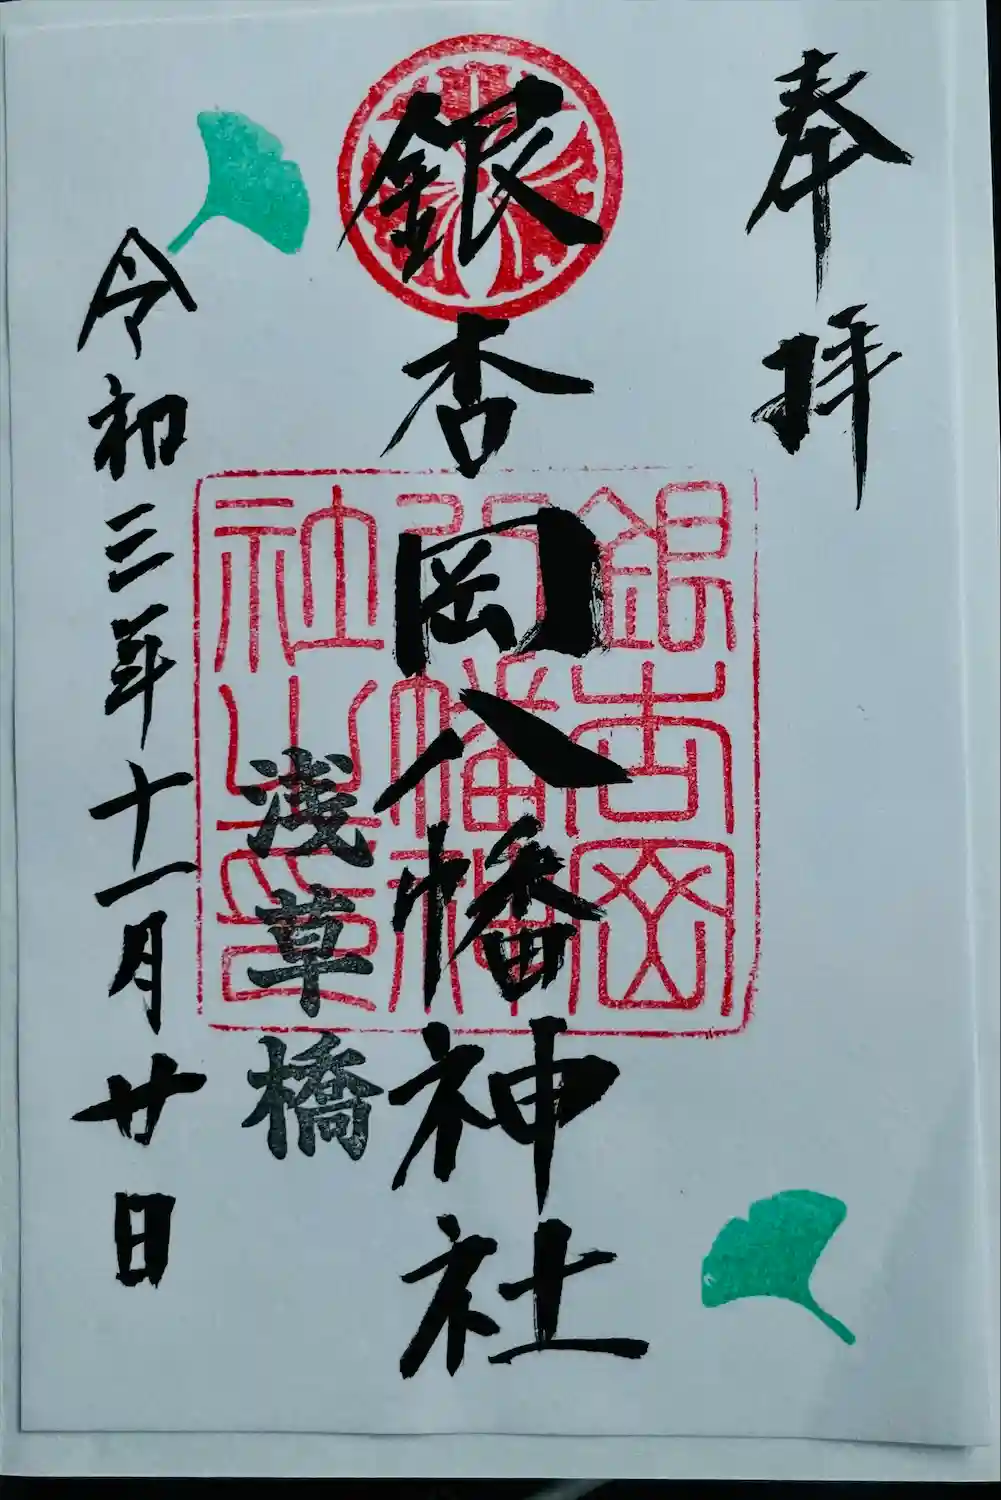 奉拝
銀杏岡八幡神社
銀杏岡八幡神社之印
浅草橋
令和三年十一月廿日